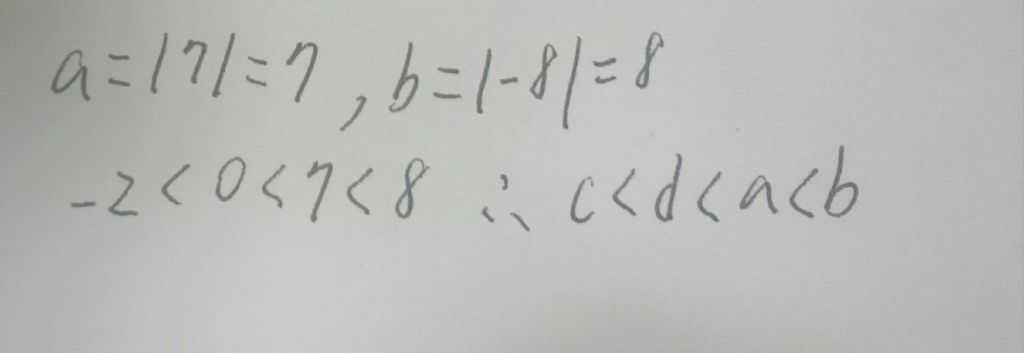 a=|7|=7, b=|-8|=8
-2<0<7<8 ∴ c<d<a<b